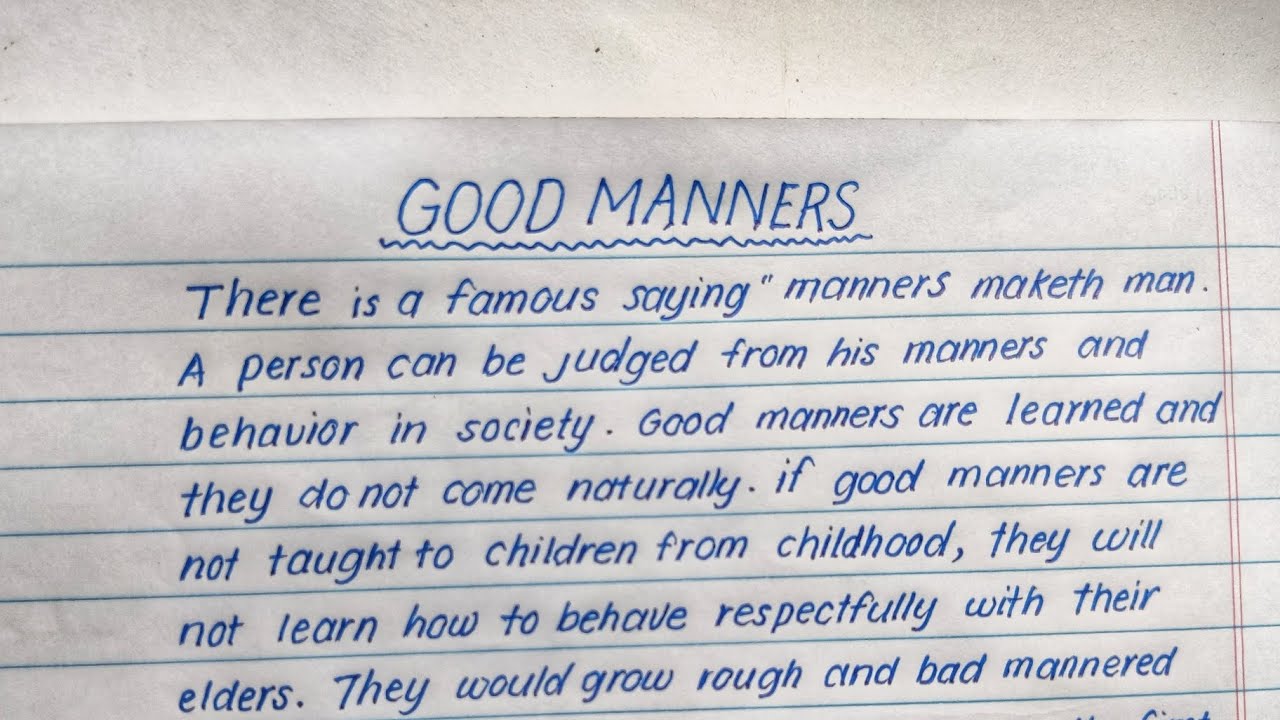 GOOD MANNERS
There is a famous saying " manners maketh man.
A person can be judged from his manners and
behavior in society. Good manners are learned and
they do not come naturally. if good manners are
not taught to children from childhood, they will
not learn how to behave respectfully with their
elders. They would grow rough and bad mannered